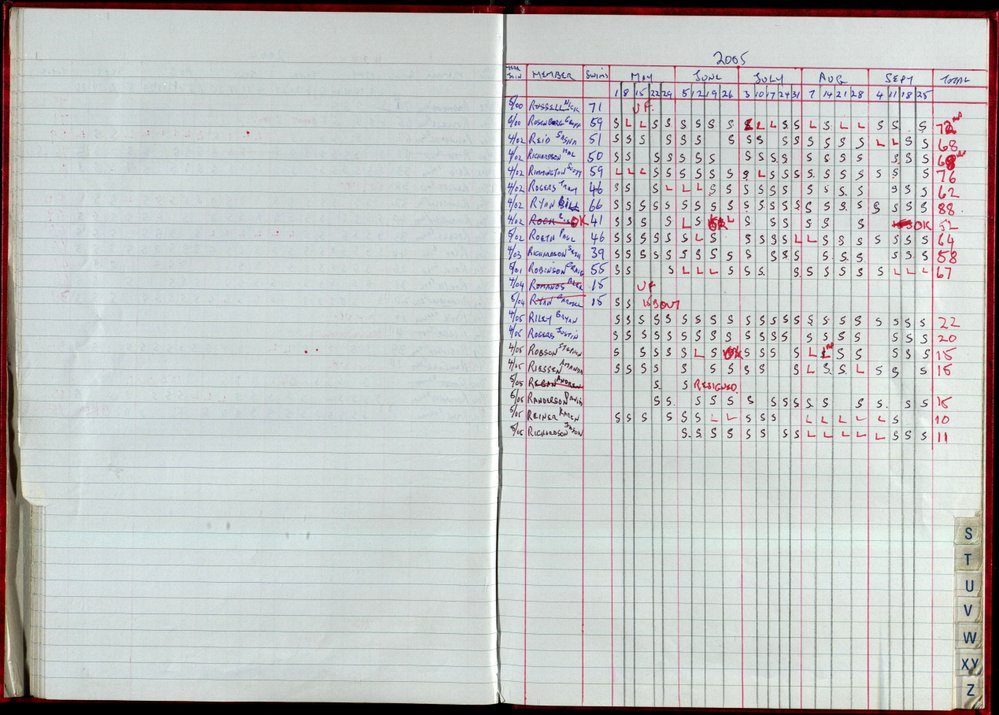 2005
YEAR JOIN MEMBER SWIMS MAY JUNE JULY AUG SEPT TOTAL
1 8 15 22 29 5 12 19 26 3 10 17 24 31 7 14 21 28 4 11 18 25
5/00 RUSSELL NICK 71 U F
6/00 ROSENBERG 59 S L L S S S S S S L L L S S L S L L S S S 72
4/02 REID 51 S S S S S S S S S S S S S S L L S S 68
4/02 RICHARDSON 50 S S S S S S S S S S S S S S S S S S
4/02 RIMMINGTON SCOTT 59 L L L S S S S S S S L S S S S S S S S S S 76
4/02 ROGERS TONY 46 S S S L L L S S S S S S S S S S S S S 62
4/02 RYAN BILL 66 S S S S S S S S S S S S S S S S S S S S S S 88
4/02 OK 41 S S S S L S L S S S S S S S OK 52
5/02 ROETH PAUL 46 S S S S S S L S S S S S L L S S S S S S S 64
4/03 RICHARDSON 39 S S S S S S S S S S S S S S S S S S S 58
5/01 ROBINSON CRAIG 55 S S S L L L S S S S S S S S S L L L 67
4/04 ROMANOS 15 U F
5/04 RYAN 15 S S
4/05 RILEY BRYAN S S S S S S S S S S S S S S S S S S S S S S 22
4/05 ROGERS JUSTIN S S S S S S S S S S S S S S S S S S S S 20
4/05 ROBSON STEPHEN S S S S S L S S S S S L L S S S S S 15
4/05 RIESSEN AMANDA S S S S S S S S S S L S S L S S S 15
5/05 REBAN ANDREW S S RESIGNED
6/05 RANDERSON DAVID S S S S S S S S S S S S S S S S 15
5/05 REINER KAREN S S S S S S L L S S S L L L L L L S 10
5/05 RICHARDSON JASON S S S S S S S S L L L L L S S S 11
S
T
U
V
W
XY
Z